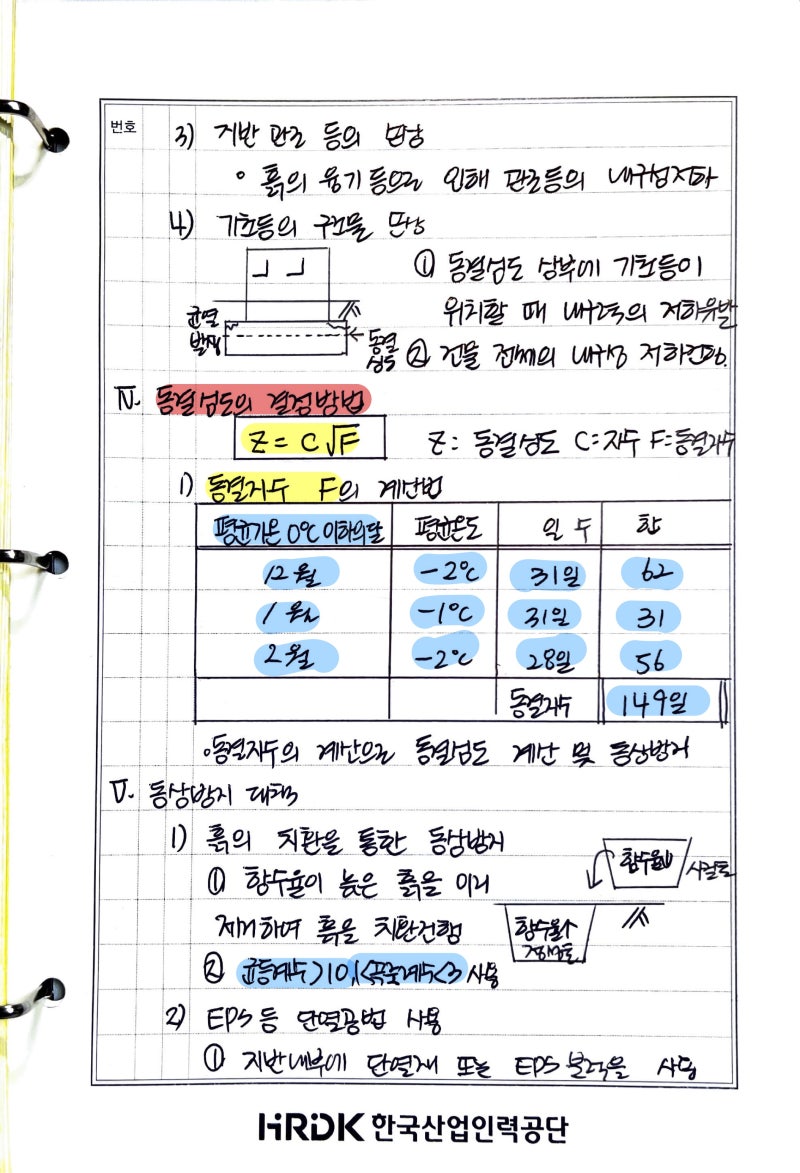 번호
3) 지반 관로 등의 동상
◦ 흙의 융기 등으로 인해 관로등의 내구성저하
4) 기초등의 구조물 동상
① 동결심도 상부에 기초등이
위치할 때 내구력의 저하유발
균열
발생
동결
심도
② 건물 전체의 내구성 저하
Ⅳ. 동결심도의 결정방법
Z = C√F
Z: 동결심도 C=지수 F=동결지수
1) 동결지수 F의 계산법
평균기온 0℃ 이하의달 평균온도 일 수 합
12월 -2℃ 31일 62
1월 -1℃ 31일 31
2월 -2℃ 28일 56
동결지수 149일
◦동결지수의 계산으로 동결심도 계산 및 동상방지
Ⅴ. 동상방지 대책
1) 흙의 치환을 통한 동상방지
① 함수율이 높은 흙을 미리
제거하여 흙을 치환진행
함수율↓ 사질토
함수율↑
점성토
② 균등계수>10, 1<곡률계수<3 사용
2) EPS 등 단열공법 사용
① 지반내부에 단열재 또는 EPS 블럭을 사용
HRDK 한국산업인력공단